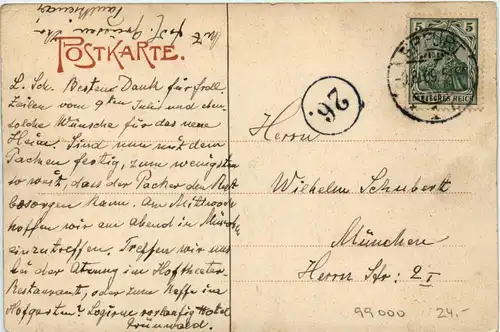 Mit
POSTKARTE.
L. Sch. Besten Dank für frdl.
Zeilen vom 9ten Juli und eben-
solche Wünsche für das neue
Heim. Sind nun mit dem
Packen fertig, zum wenigsten
so weit, dass der Packer den Rest
besorgen kann. Am Mittwoch
hoffen wir am abend in München
einzutreffen. Treffen wir uns
bei der Ankunft im Hoftheater-
Restaurant, oder zum Kaffee im
Hofgarten? Logieren vorläufig Hotel
Grünwald.
5
DEUTSCHES REICH
26.
Herrn
Wilhelm Schubert
München
Herrn Str: 2 I
99000 24.-